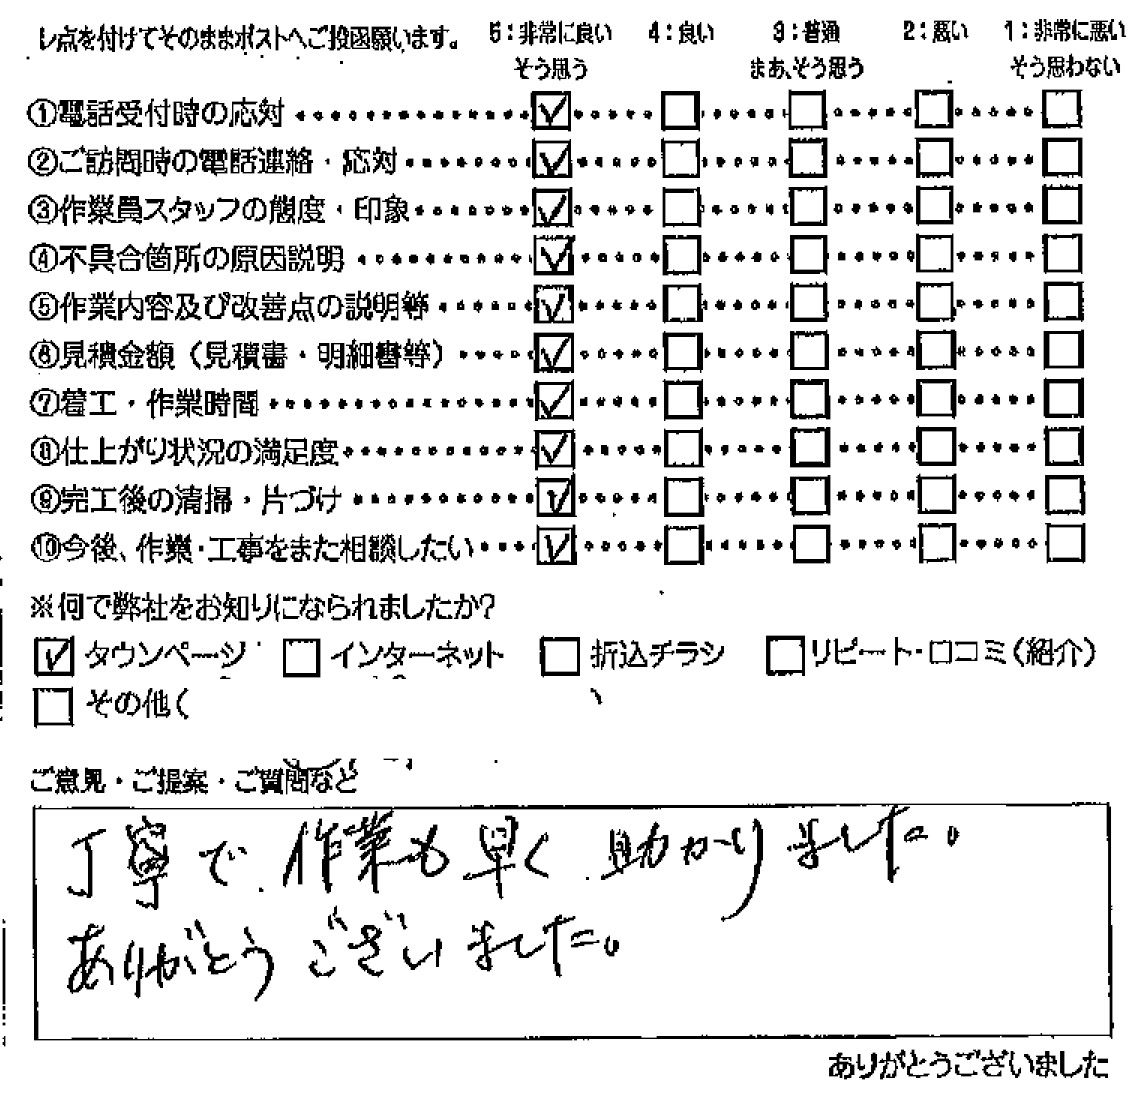 レ点を付けてそのままポストへご投函願います。 5：非常に良い 4：良い 3：普通 2：悪い 1：非常に悪い
そう思う まあ、そう思う そう思わない
①電話受付時の応対
②ご訪問時の電話連絡・応対
③作業員スタッフの態度・印象
④不具合箇所の原因説明
⑤作業内容及び改善点の説明等
⑥見積金額（見積書・明細書等）
⑦着工・作業時間
⑧仕上がり状況の満足度
⑨完工後の清掃・片づけ
⑩今後、作業・工事をまた相談したい
※何で弊社をお知りになられましたか？
タウンページ インターネット 折込チラシ リピート・口コミ（紹介）
その他（
ご意見・ご提案・ご質問など
丁寧で作業も早く助かりました。
ありがとうございました。
ありがとうございました